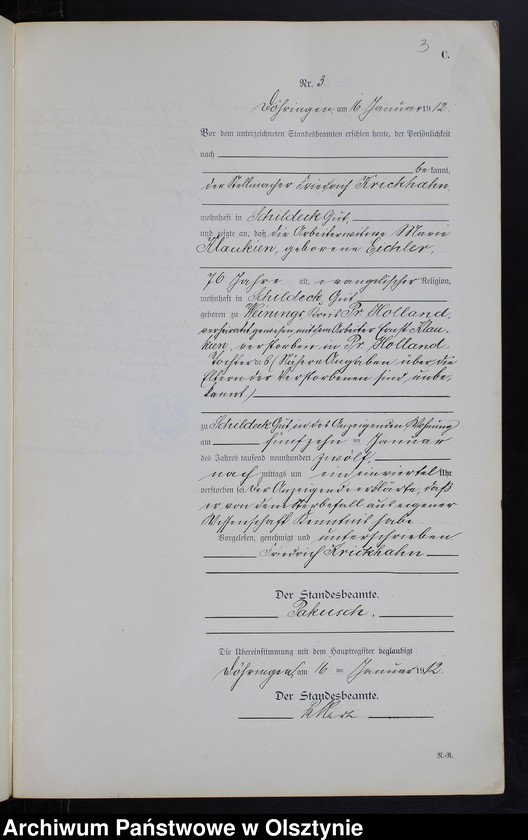 3
C.
Nr. 3.
Döhringen, am 16 Januar 1912.
Vor dem unterzeichneten Standesbeamten erschien heute, der Persönlichkeit
nach
be kannt,
der Stellmacher Friedrich Krickhahn,
wohnhaft in Schildeck Gut,
und zeigte an, daß die Arbeiterwitwe Marie
Klaukien, geborene Eichler,
76 Jahre alt, evangelischer Religion,
wohnhaft in Schildeck, Gut
geboren zu Weinings Kreis Pr Holland,
verheiratet gewesen mit dem Arbeiter Ernst Klau-
kien, verstorben in Pr Holland.
Tochter des (Nähere Angaben über die
Eltern der Verstorbenen sind unbe-
kannt)
zu Schildeck Gut, in des Anzeigenden Wohnung
am fünfzehn ten Januar
des Jahres tausend neunhundert zwölf,
nach mittags um ein einviertel Uhr
verstorben sei. Der Anzeigende erklärte, daß
er von dem Sterbefall aus eigener
Wissenschaft Kenntnis habe.
Vorgelesen, genehmigt und unterschrieben
Friedrich Krickhahn
Der Standesbeamte.
Pakusch.
Die Übereinstimmung mit dem Hauptregister beglaubigt
Döhringen, am 16 ten Januar 1912.
Der Standesbeamte.
N.-R.
Archiwum Państwowe w Olsztynie